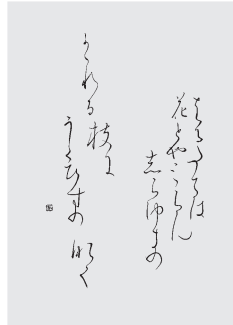 春たてば
花とや見らん
志らゆきの
かゝれる枝に
うぐひすの
鳴く